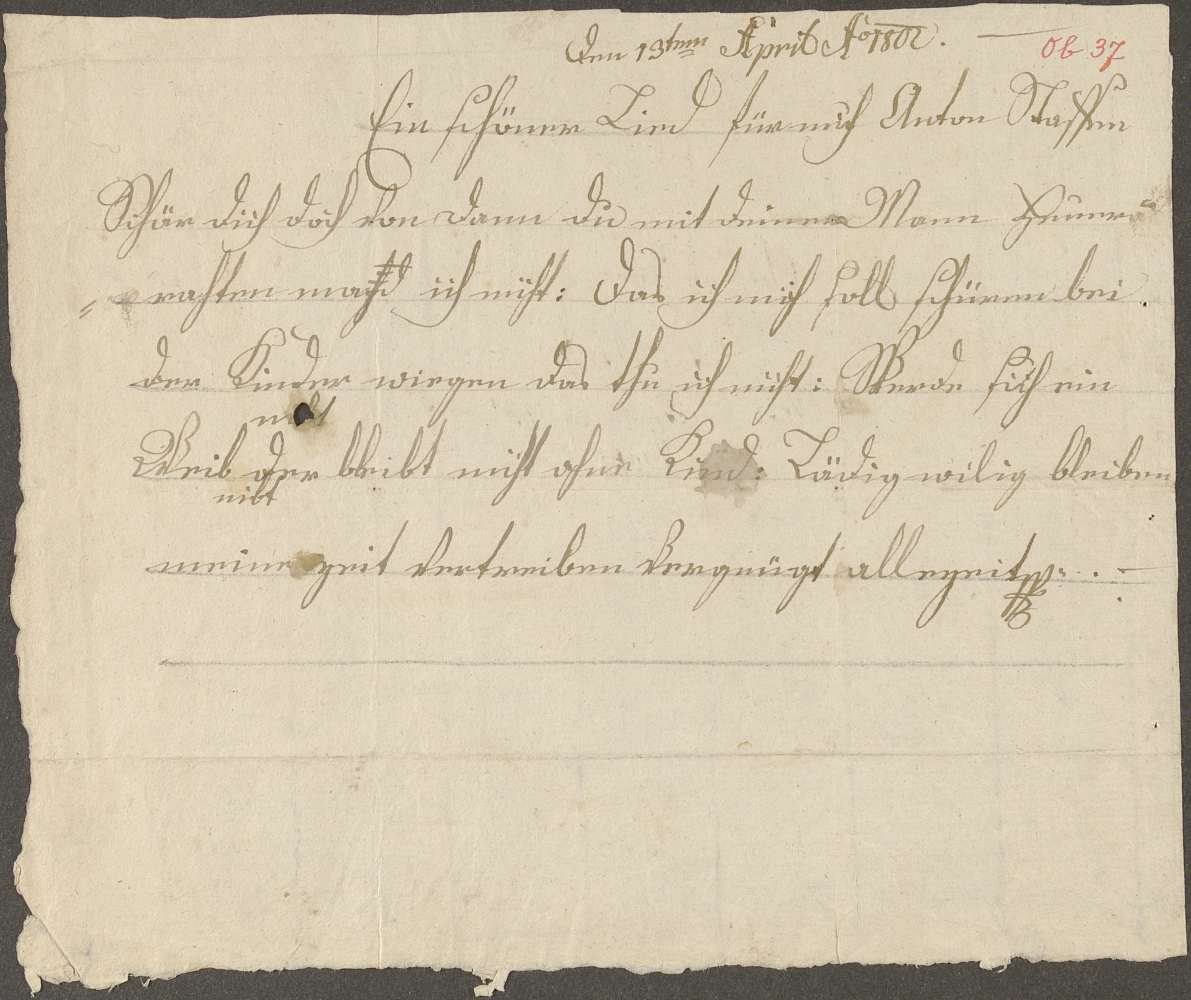 Den 13ten April Ao 1802.
Ob 37
Ein schöner Lied für mich Anton Staffen
Schär dich doch von dann du mit deinen Mann
rathen mach ich nicht: Das ich mich soll schüren bei
der Kinder wiegen das thu ich nicht: Werde sich ein
nibt
Weib der bleibt nicht ohne Kind: Lädig wilig bleiben
nibt
meine zeit vertreiben vergnügt allezeit